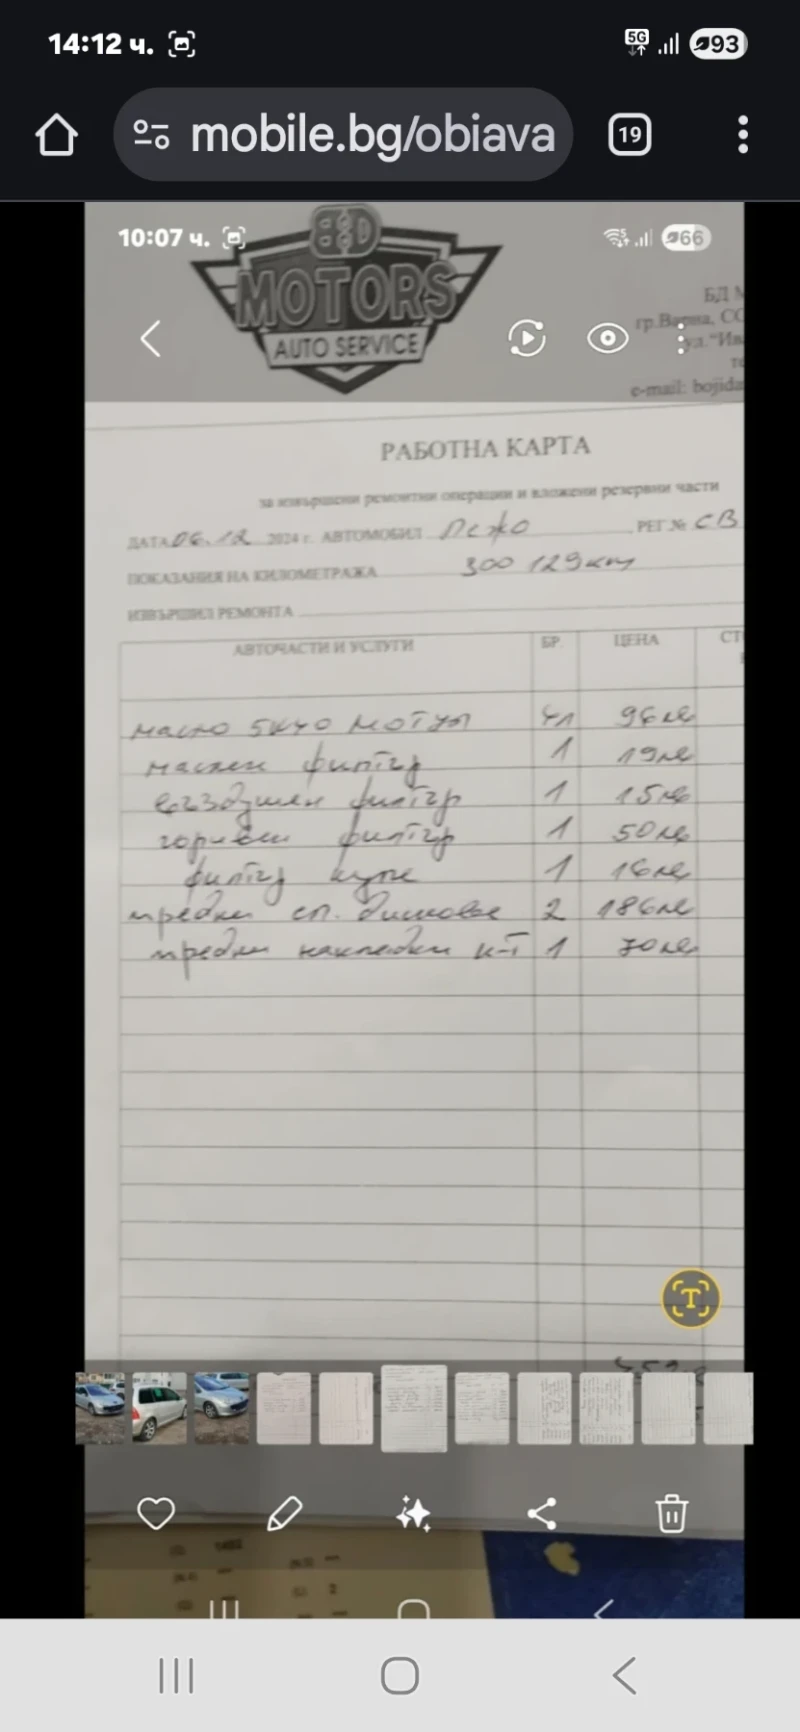 14:12 ч.
5G
93
mobile.bg/obiava
19
10:07 ч.
66
BD
MOTORS
AUTO SERVICE
БД М
гр.Варна, СО
ул."Ив
те
e-mail: bojida
РАБОТНА КАРТА
за извършени ремонтни операции и вложени резервни части
ДАТА 06.12 2024 г. АВТОМОБИЛ Пежо РЕГ № СВ
ПОКАЗАНИЯ НА КИЛОМЕТРАЖА 300 129 км
ИЗВЪРШИЛ РЕМОНТА
АВТОЧАСТИ И УСЛУГИ БР. ЦЕНА СТ
масло 5w40 мотул 4л 96лв
маслен филтър 1 19лв
въздушен филтър 1 15лв
горивен филтър 1 50лв
филтър купе 1 16лв
предни сп. дискове 2 186лв
предни накладки к-т 1 70лв
T